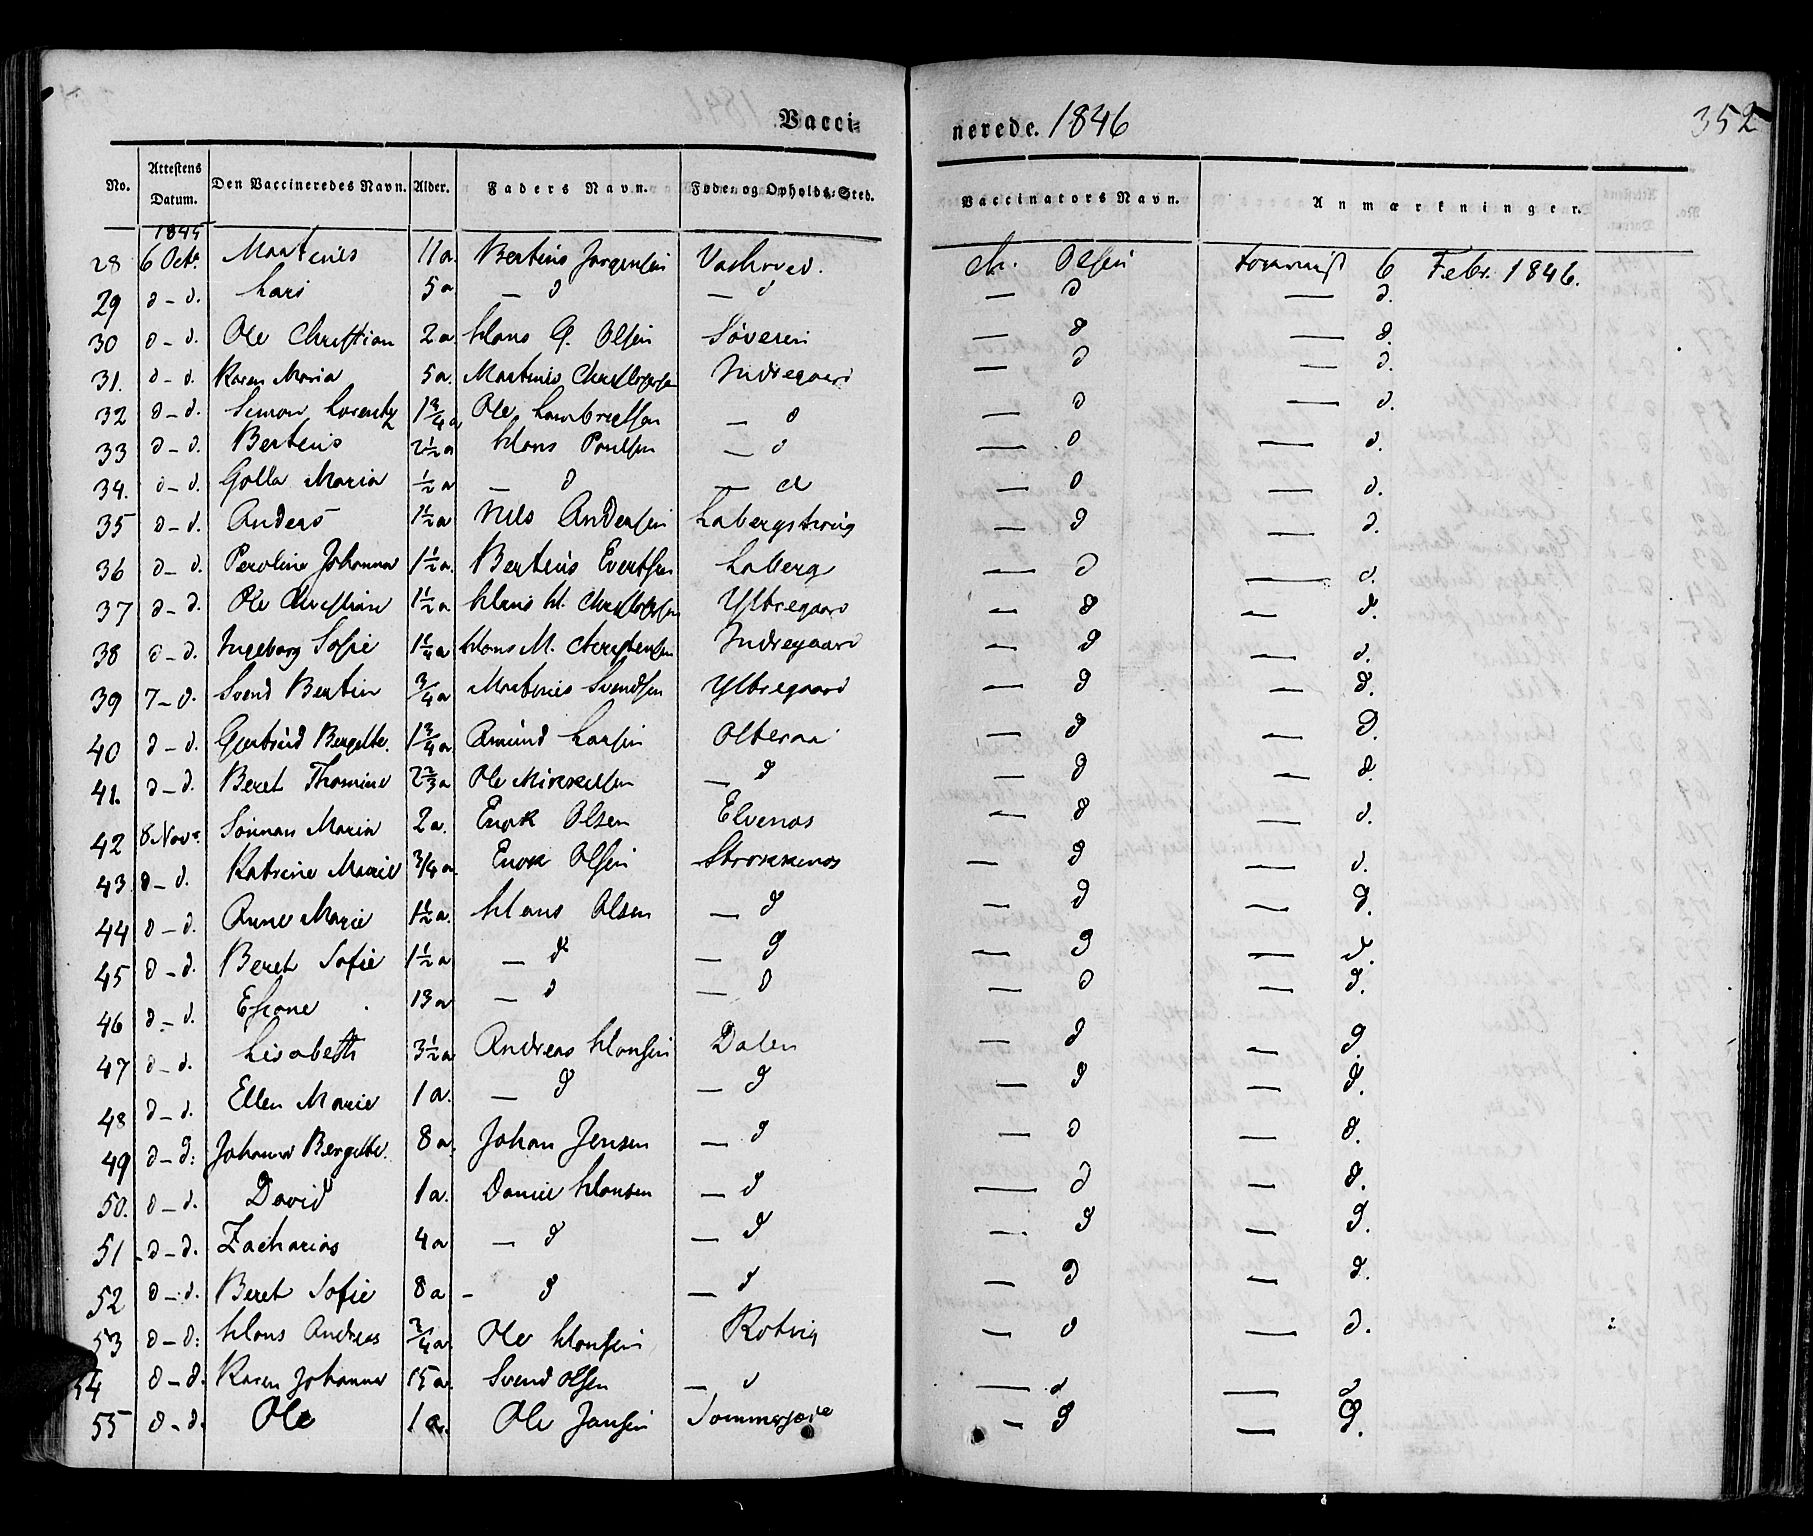 Vacci-
nerede. 1846
352
No. | Attestens Datum. | Den Vaccineredes Navn. | Alder. | Faders Navn. | Føde- og Opholds-Sted. | Vaccinators Navn. | Anmærkninger.
1845
28 | 6 Octr | Martenis | 11 a. | Bertinis Jørgensen | | Chr. Olsen | 6 Febr. 1846.
29 | d – d. | Lars | 5 a | — d | — d | — d | — d.
30 | d – d. | Ole Christian | 2 a | Hans G. Olsen | Søveien | — d | — d.
31. | d – d. | Karen Maria | 5 a. | Martenis Christophersen | Indregaard | — d | — d.
32 | d – d. | Simon Lorentz | 1 3/4 a | Ole Lambretsen | — d | — d | — d.
33 | d – d. | Bertinis | 2 1/2 a | Hans Poulsen | — d | — d | — d.
34. | d – d. | Golla Maria | 1/2 a | — d | — d | — d | — d.
35 | d – d. | Anders | 1 1/2 a | Nils Andersen | | — d | — d.
36 | d – d. | Peroline Johanna | 1 1/2 a. | Bertinis Evertsen | Laberg | — d | — d.
37 | d – d. | Ole Christian | 1 1/2 a | Hans H. Christophersen | Yttregaard | — d | — d.
38 | d – d. | Ingeborg Sofie | 1 1/4 a | Hans M. Christensen | Indregaard | — d | — d.
39 | 7 – d. | Svend Bertin | 3/4 a | Martinis Svendsen | Yttregaard | — d | — d.
40 | d – d. | Gjertrud Bergitte. | 1 3/4 a | Amund Larsen | Olteraa | — d | — d.
41. | d – d. | Beret Thomine | 2 2/3 a | Ole Mikkelsen | — d | — d | — d.
42 | 8 Novr. | Maria | 2 a. | Enok Olsen | Elvenæs | — d | — d.
43 | d – d. | Katrine Marie | 3/4 a. | Enok Olsen | Strokkenæs | — d | — d.
44 | d – d. | Anne Marie | 1 1/2 a. | Hans Olsen | — d | — d | — d.
45 | d – d. | Beret Sofie | 1 1/2 a | — d | — d | — d | — d.
46 | d – d. | | 13 a | — d | — d | — d | — d.
47 | d – d. | Lisabeth | 3 1/2 a | Andreas Hansen | Dalen | — d | — d.
48 | d – d. | Ellen Marie | 1 a. | — d | — d | — d | — d.
49 | d – d. | Johanna Bergitte. | 8 a. | Johan Jensen | — d | — d | — d.
50. | d – d. | David | 1 a. | Daniel Hansen | — d | — d | — d.
51 | d – d. | Zacharias | 4 a | — d | — d | — d | — d.
52 | d – d. | Beret Sofie | 8 a | – d | — d | — d | — d.
53 | d – d. | Hans Andreas | 3/4 a | Ole Hansen | Rotvig | — d | — d.
54 | d – d. | Karen Johanna | 15 a. | Svend Olsen | — d | — d | — d
55 | d – d. | Ole | 1 a. | Ole Jansen | | — d | — d.